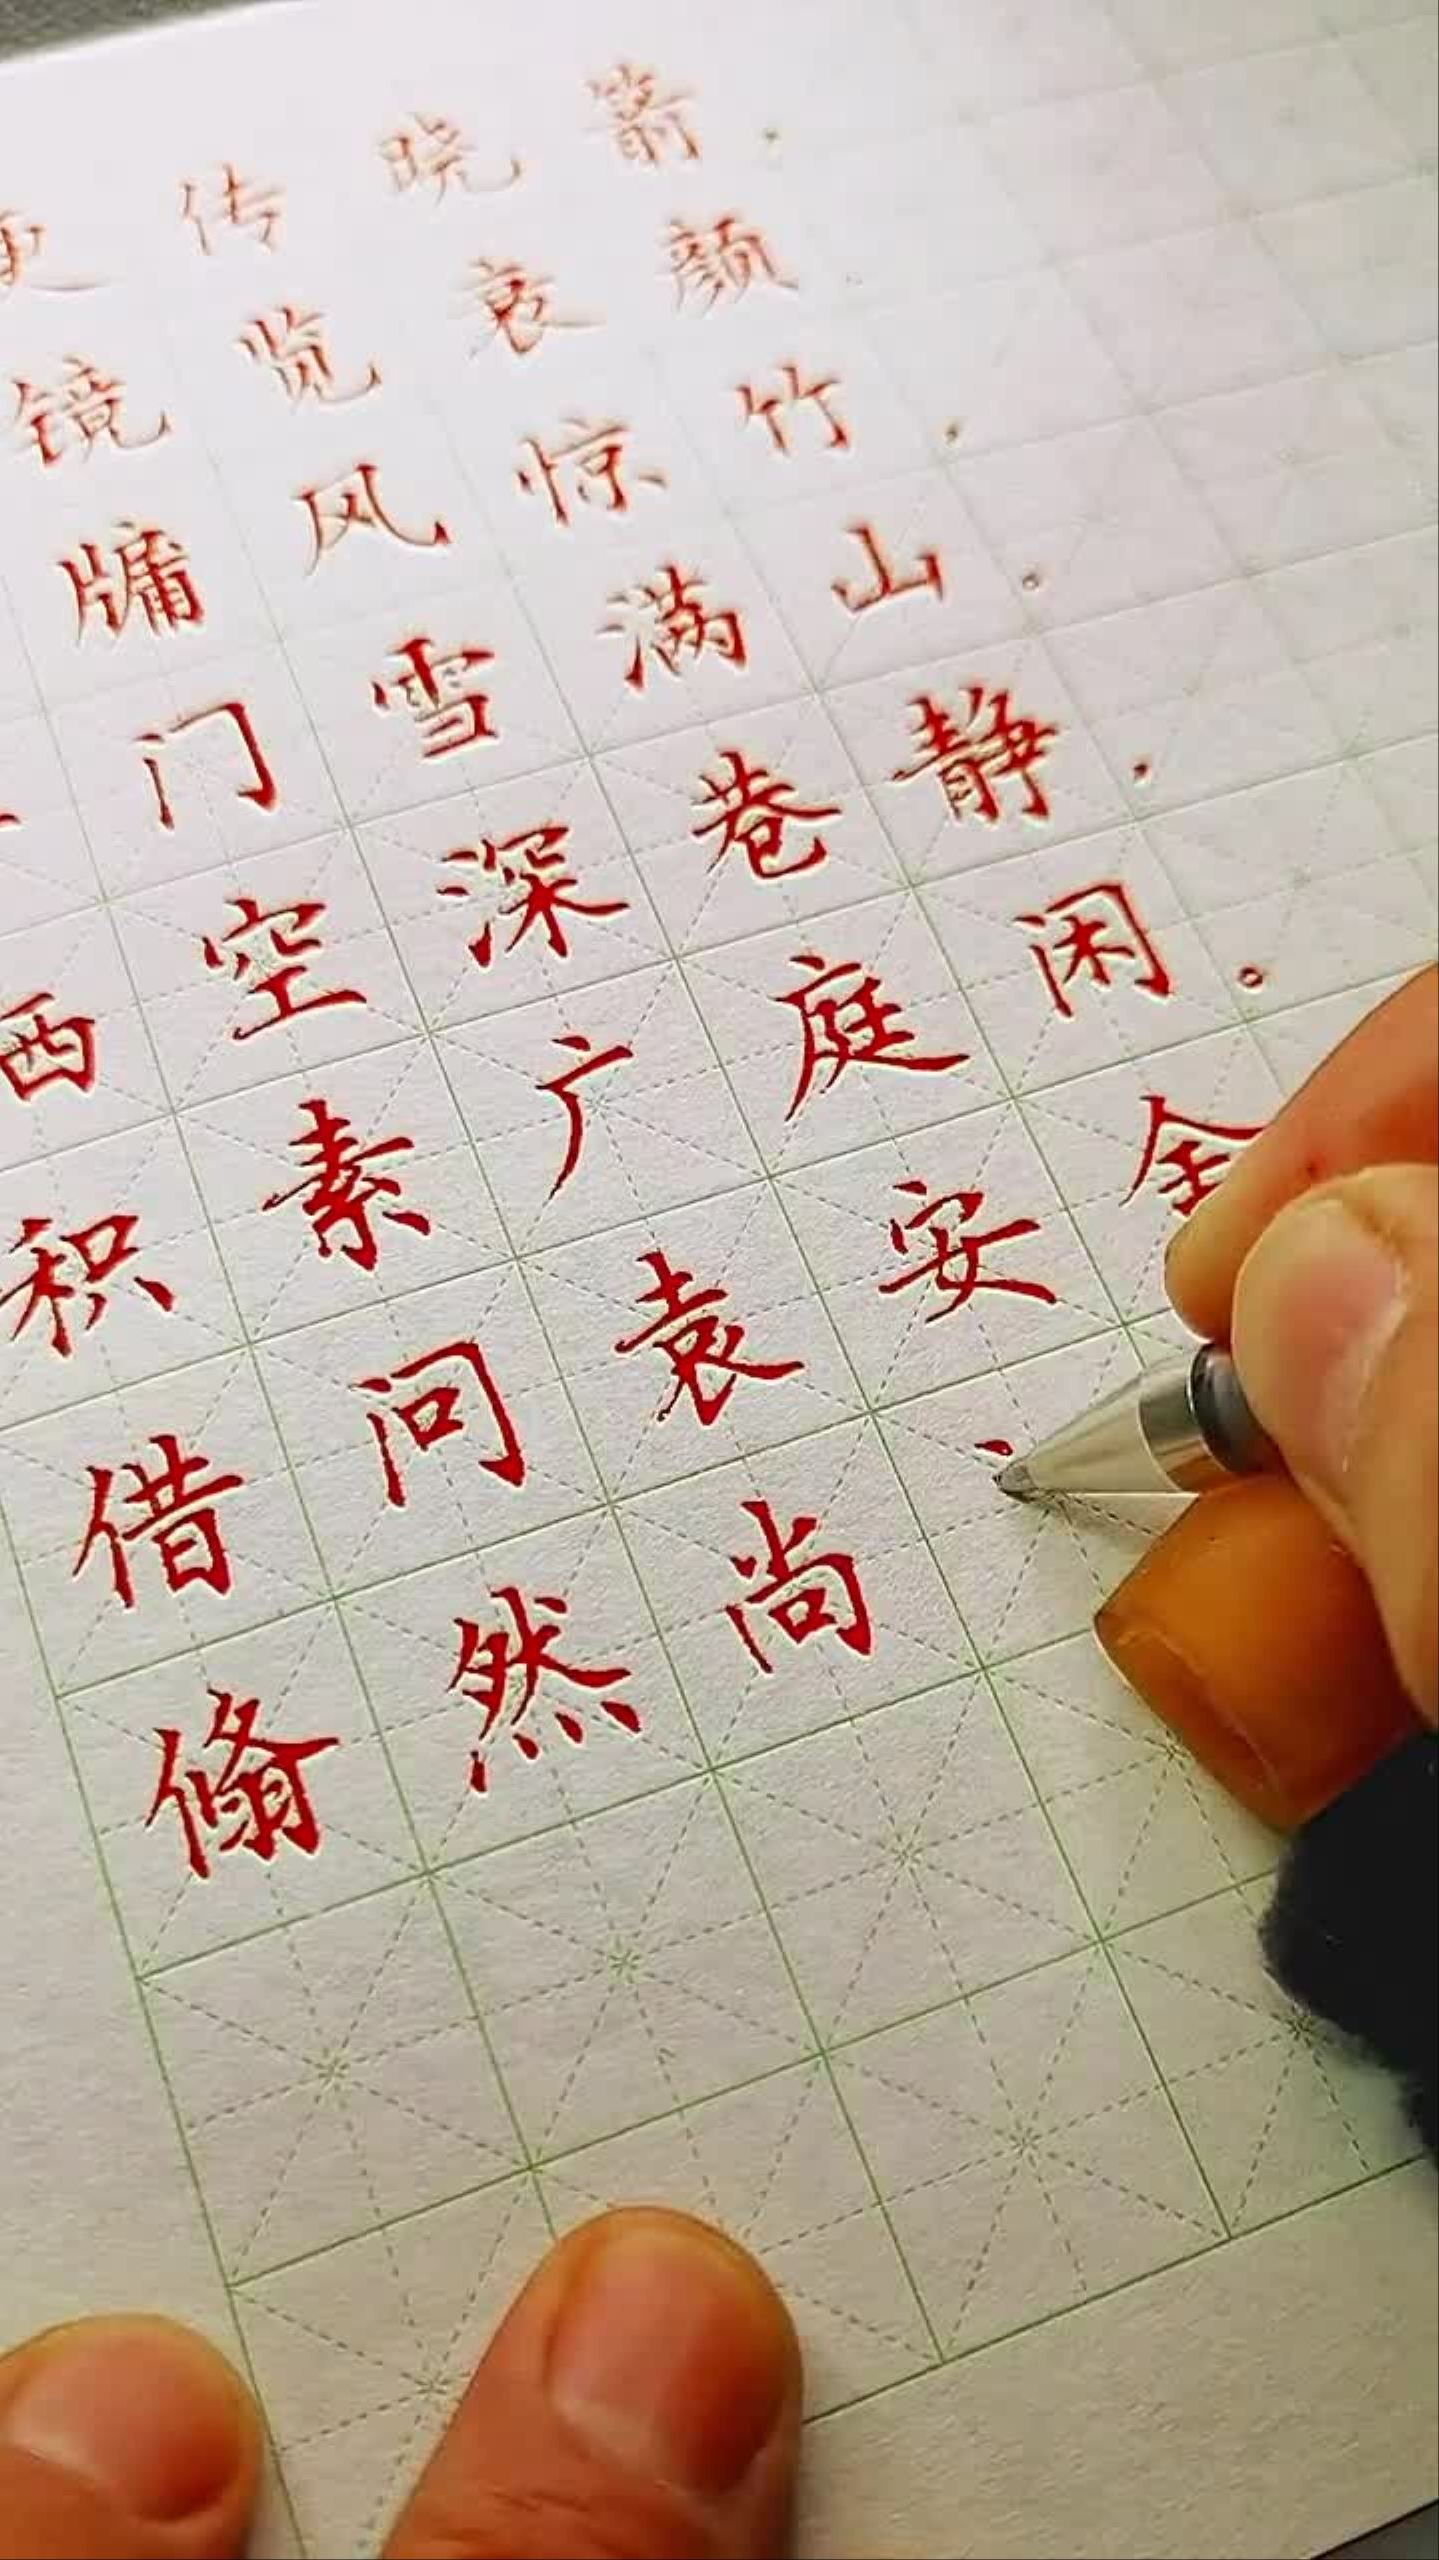 更传晓箭，
镜览衰颜。
牖风惊竹，
门雪满山。
洒空深巷静，
积素广庭闲。
借问袁安舍
翛然尚